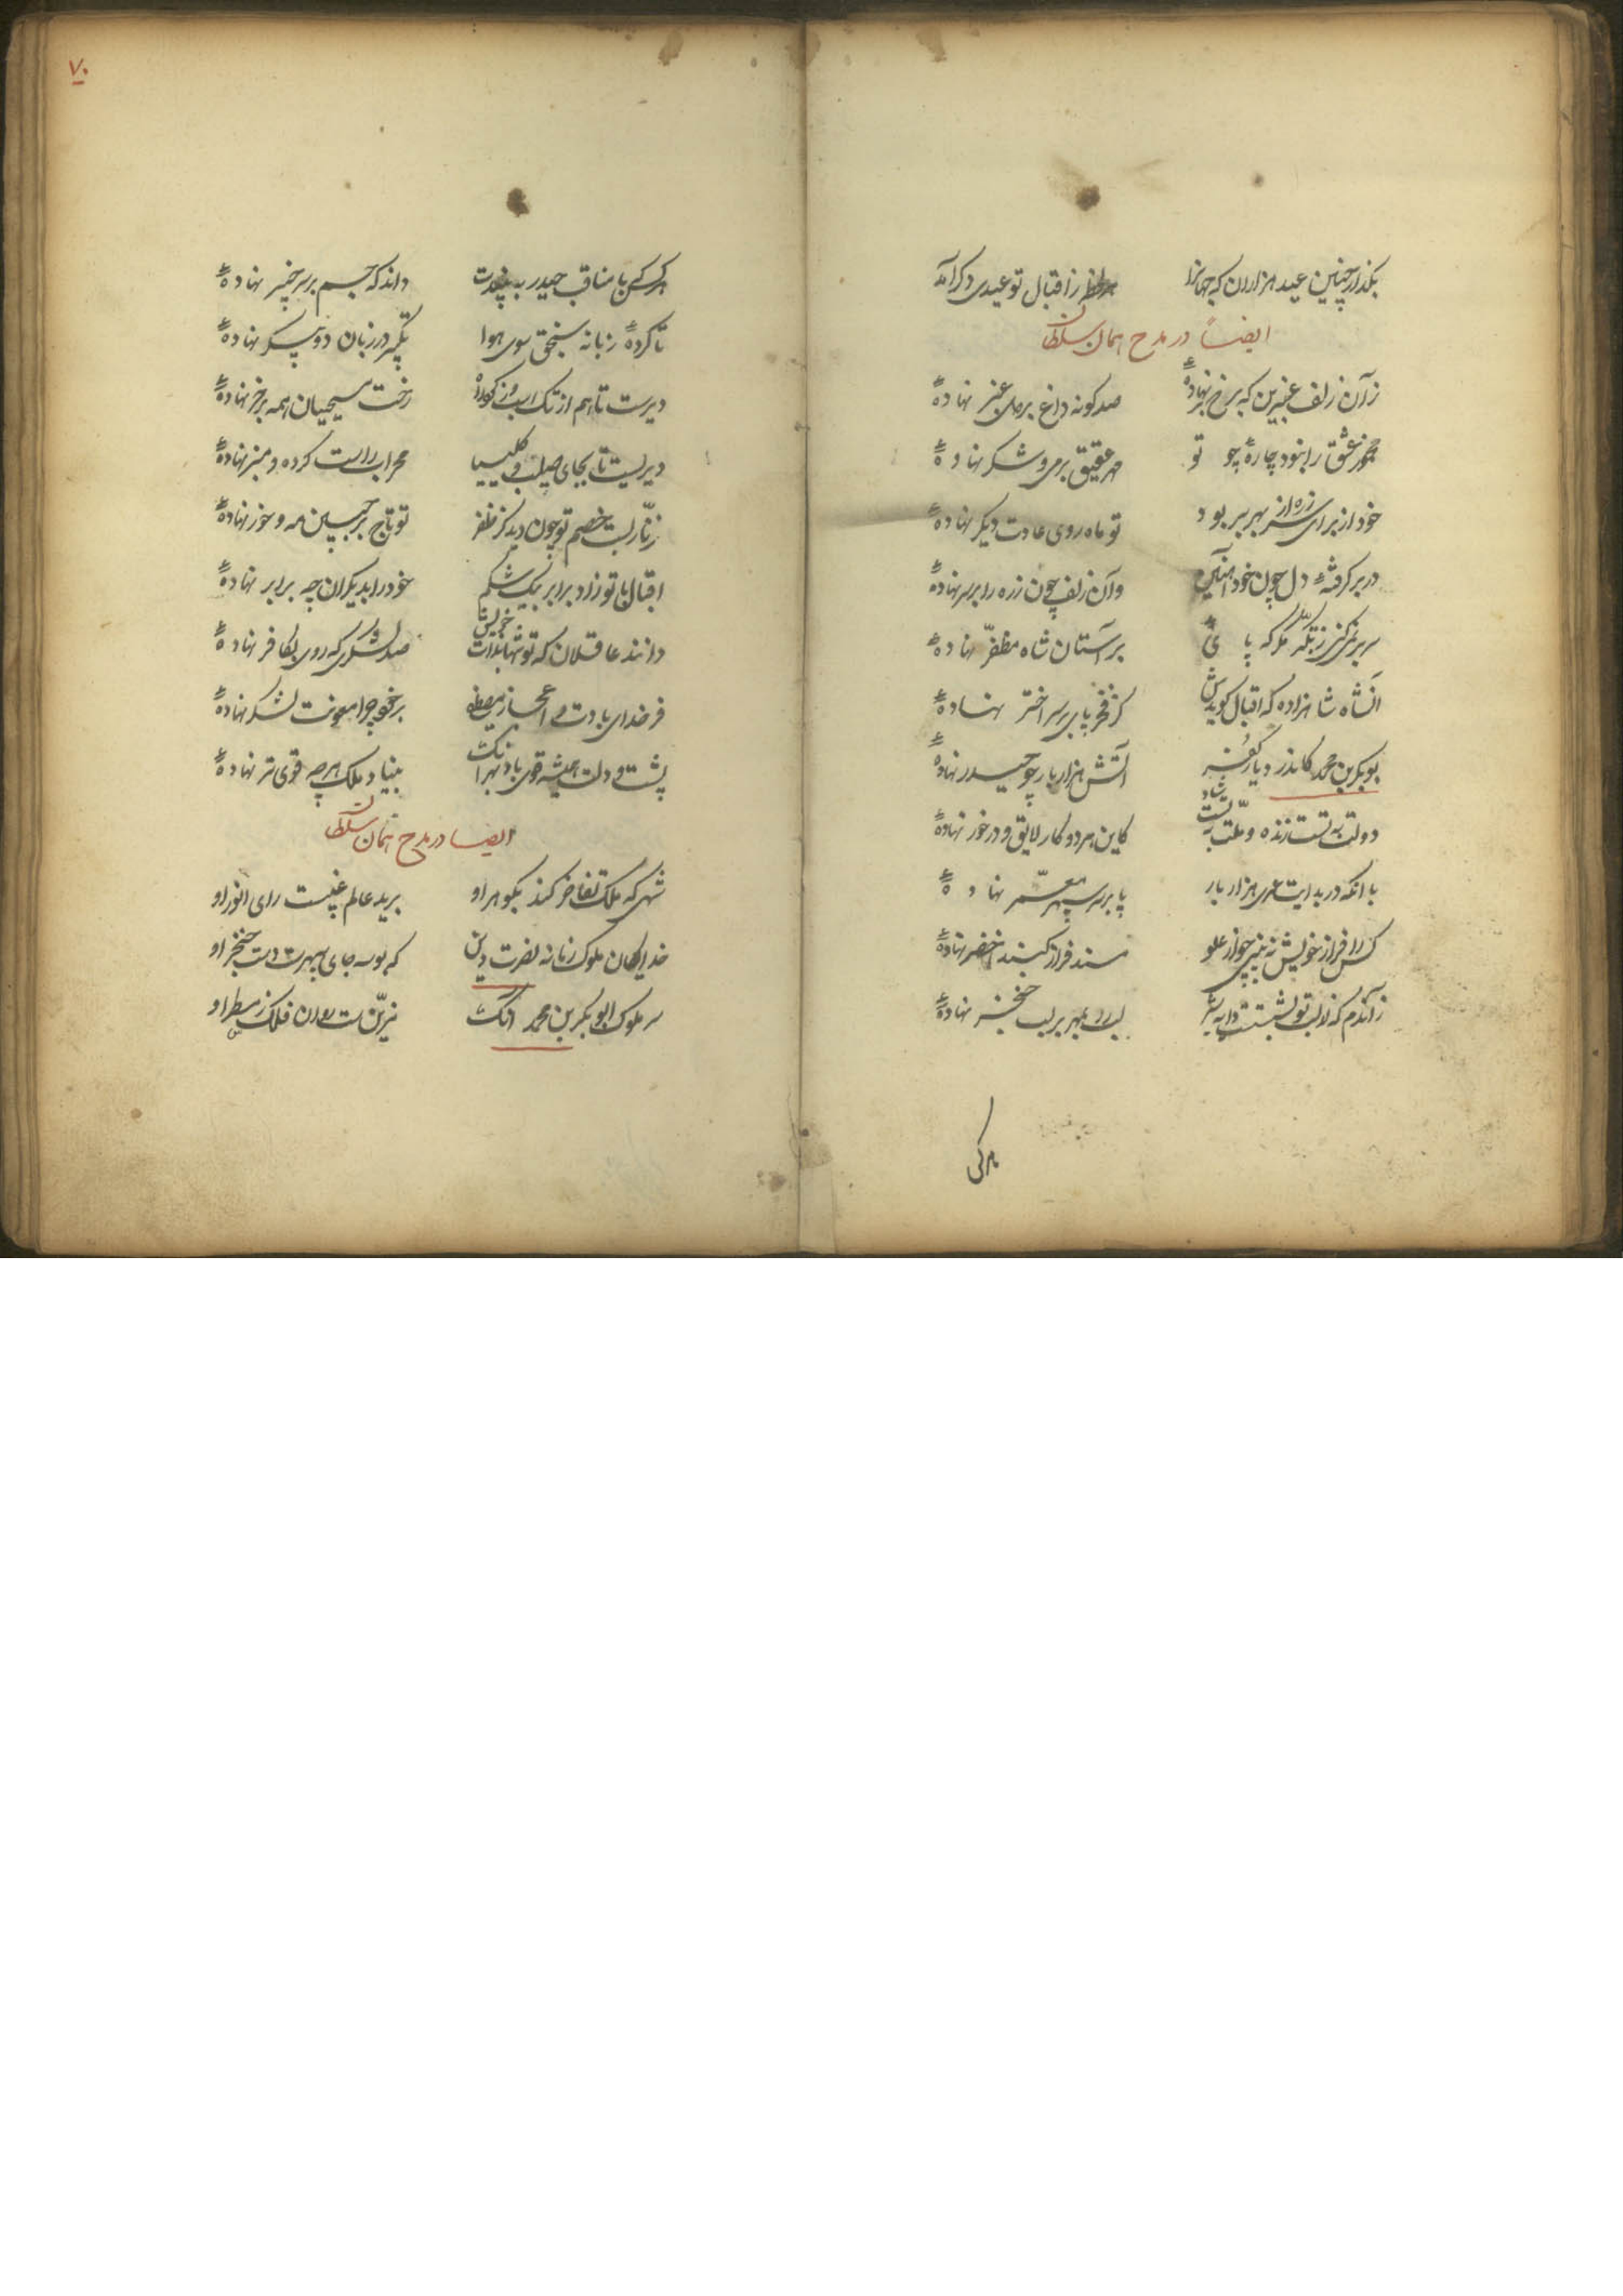 بگذار چنین عید هزاران که جهانرا هر لحظه ز اقبال تو عیدی دگر آمد
ایضاً در مدح همان سلطان
زآن زلف عنبرین که برخ بر نهادهٔ صد گونه داغ بر دل عنبر نهادهٔ
مخمور عشق را نبود چارهٔ چو تو مهر عقیق بر می و شکر نهادهٔ
خود از برای سر زره از بهر بر بود تو ماه روی عادت دیگر نهادهٔ
در بر گرفتهٔ دل چون خود آهنین وآن زلف چون زره را بر سر نهادهٔ
سر بر نمی‌کنی ز تکبّر مگر که پای بر آستان شاه مظفّر نهادهٔ
آنشاه شاهزاده که اقبال گویدش کز فخر پای بر سر اختر نهادهٔ
بوبکر بن محمد کاندر دیار کفر آتش هزار بار چو حیدر نهادهٔ
دولت به تست زنده و ملّت به تست شاد کاین هر دو کار لایق و در خور نهادهٔ
با آنکه در بدایت عمری هزار بار پا بر سر سپهر معمّر نهادهٔ
کس را فراز خویش نه بینی چو از علو مسند فراز گنبد اخضر نهادهٔ
زآندم که لب تو بشست دایه ز شیر لب را بمهر بر لب خنجر نهادهٔ
هر کس که با مناقب حیدر به بیندت داند که جسم بر سر خیبر نهادهٔ
تا کردهٔ زبانه سنجق سوی هوا تکبیر در زبان دو پیکر نهادهٔ
دیرست تا هم از تک اسب رخت مسیحیان همه بر خر نهادهٔ
دیریست تا بجای صلیب و کلیسیا محراب راست کرده و منبر نهادهٔ
زنّار بست خصم تو چون دید کز ظفر تو تاج بر جبین مه و خور نهادهٔ
اقبال با تو زاد برابر بیک شکم خود را بدیگران چه برابر نهادهٔ
دانند عاقلان که تو تنها بذات خویش صد لشکری که روی بکافر نهادهٔ
فر خدای با دت و اعجاز مصطفی بر خود چرا معونت لشکر نهادهٔ
پشت و دلت همیشه قوی باد بهر آنک بنیاد ملک هر چه قوی تر نهادهٔ
ایضا در مدح همان سلطان
شهی که ملک تفاخر کند بگوهر او برید عالم غیبست رای انور او
خدایگان ملوک زمانه نصرت دین که بوسه جای سپهرست دست خنجر او
سر ملوک ابوبکر بن محمد آنک
هر کس
۷۰